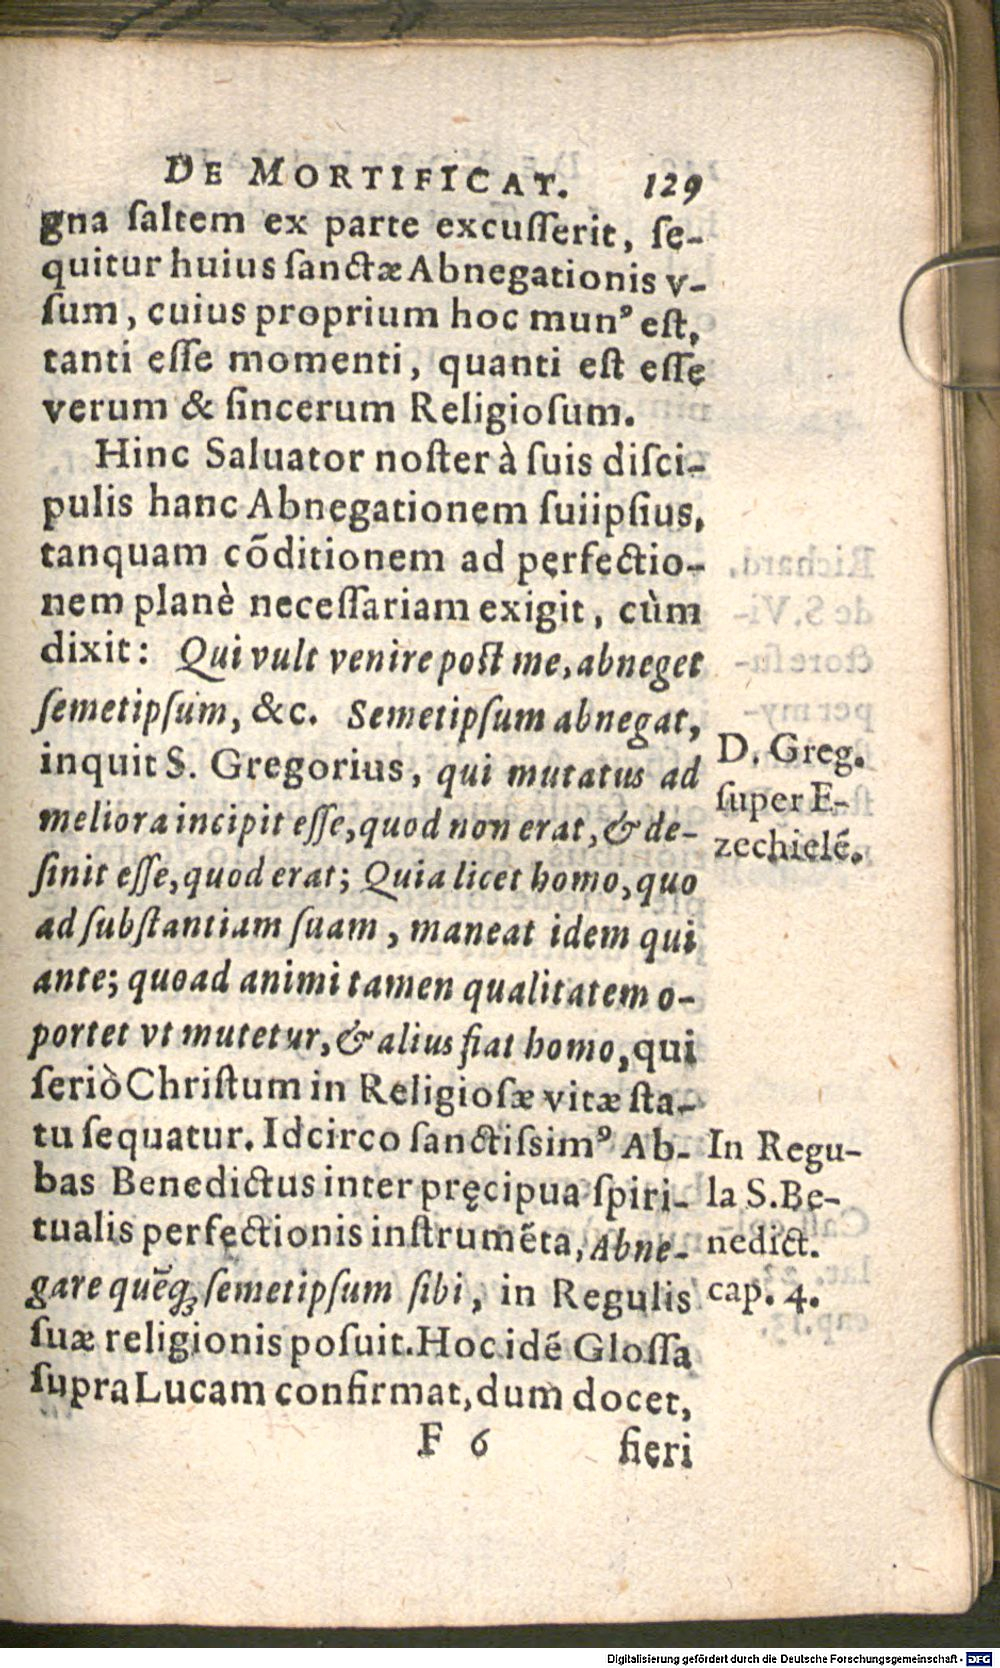 DE MORTIFICAT. 129
gna saltem ex parte excusserit, se-
quitur huius sanctæ Abnegationis v-
sum, cuius proprium hoc munꝰ est,
tanti esse momenti, quanti est esse
verum & sincerum Religiosum.
Hinc Saluator noster à suis disci-
pulis hanc Abnegationem suiipsius,
tanquam cōditionem ad perfectio-
nem planè necessariam exigit, cùm
dixit: Qui vult venire post me, abneget
semetipsum, &c. Semetipsum abnegat,
inquit S. Gregorius, qui mutatus ad
meliora incipit esse, quod non erat, & de-
sinit esse, quod erat; Quia licet homo, quo
ad substantiam suam, maneat idem qui
ante; quoad animi tamen qualitatem o-
portet vt mutetur, & alius fiat homo, qui
seriò Christum in Religiosæ vitæ sta-
tu sequatur. Idcirco sanctissimꝰ Ab-
bas Benedictus inter pręcipua spiri-
tualis perfectionis instrumēta, Abne-
gare quēq̨ semetipsum sibi, in Regulis
suæ religionis posuit. Hoc idē Glossa
supra Lucam confirmat, dum docet,
F 6 fieri
D. Greg.
super E-
zechielē.
In Regu-
la S. Be-
nedict.
cap. 4.
Digitalisierung gefördert durch die Deutsche Forschungsgemeinschaft - DFG